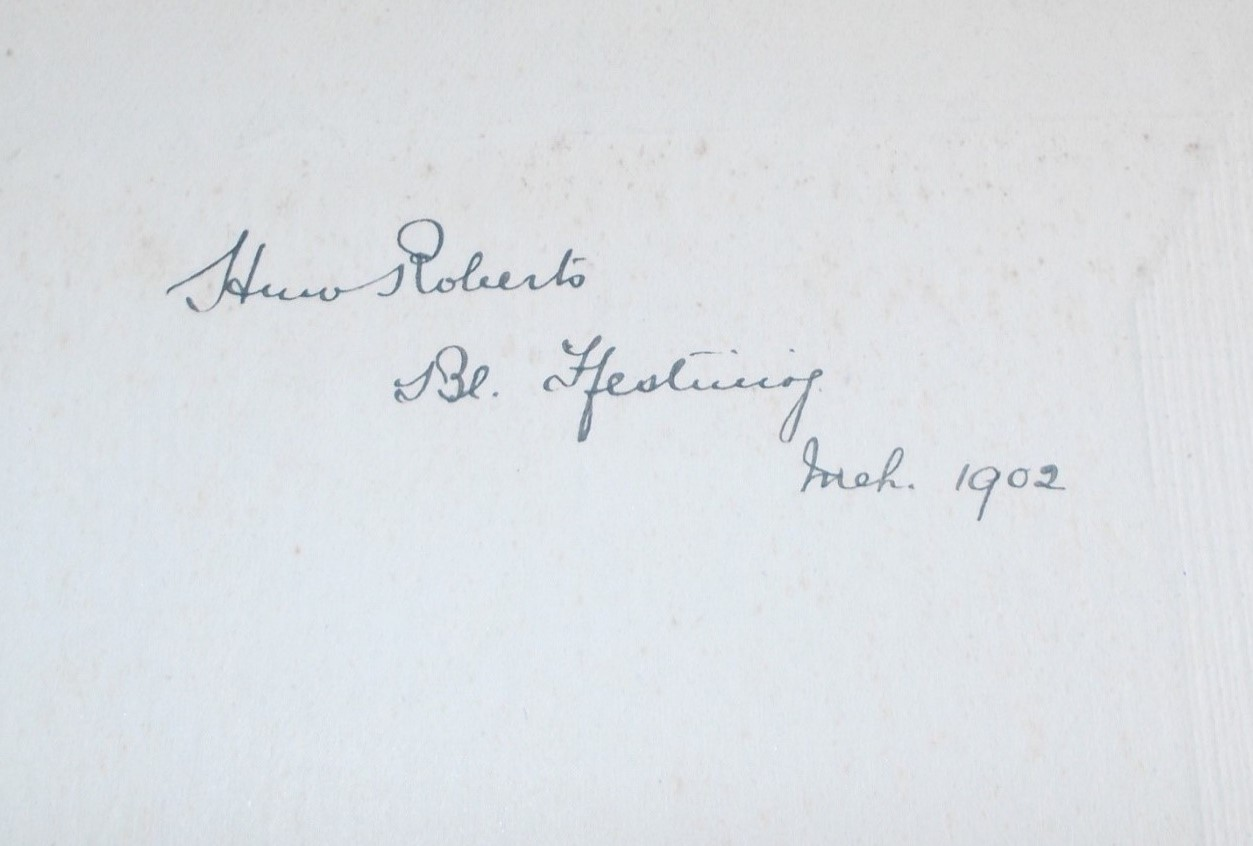 Huw Roberts
Bl. Ffestiniog
Mch. 1902